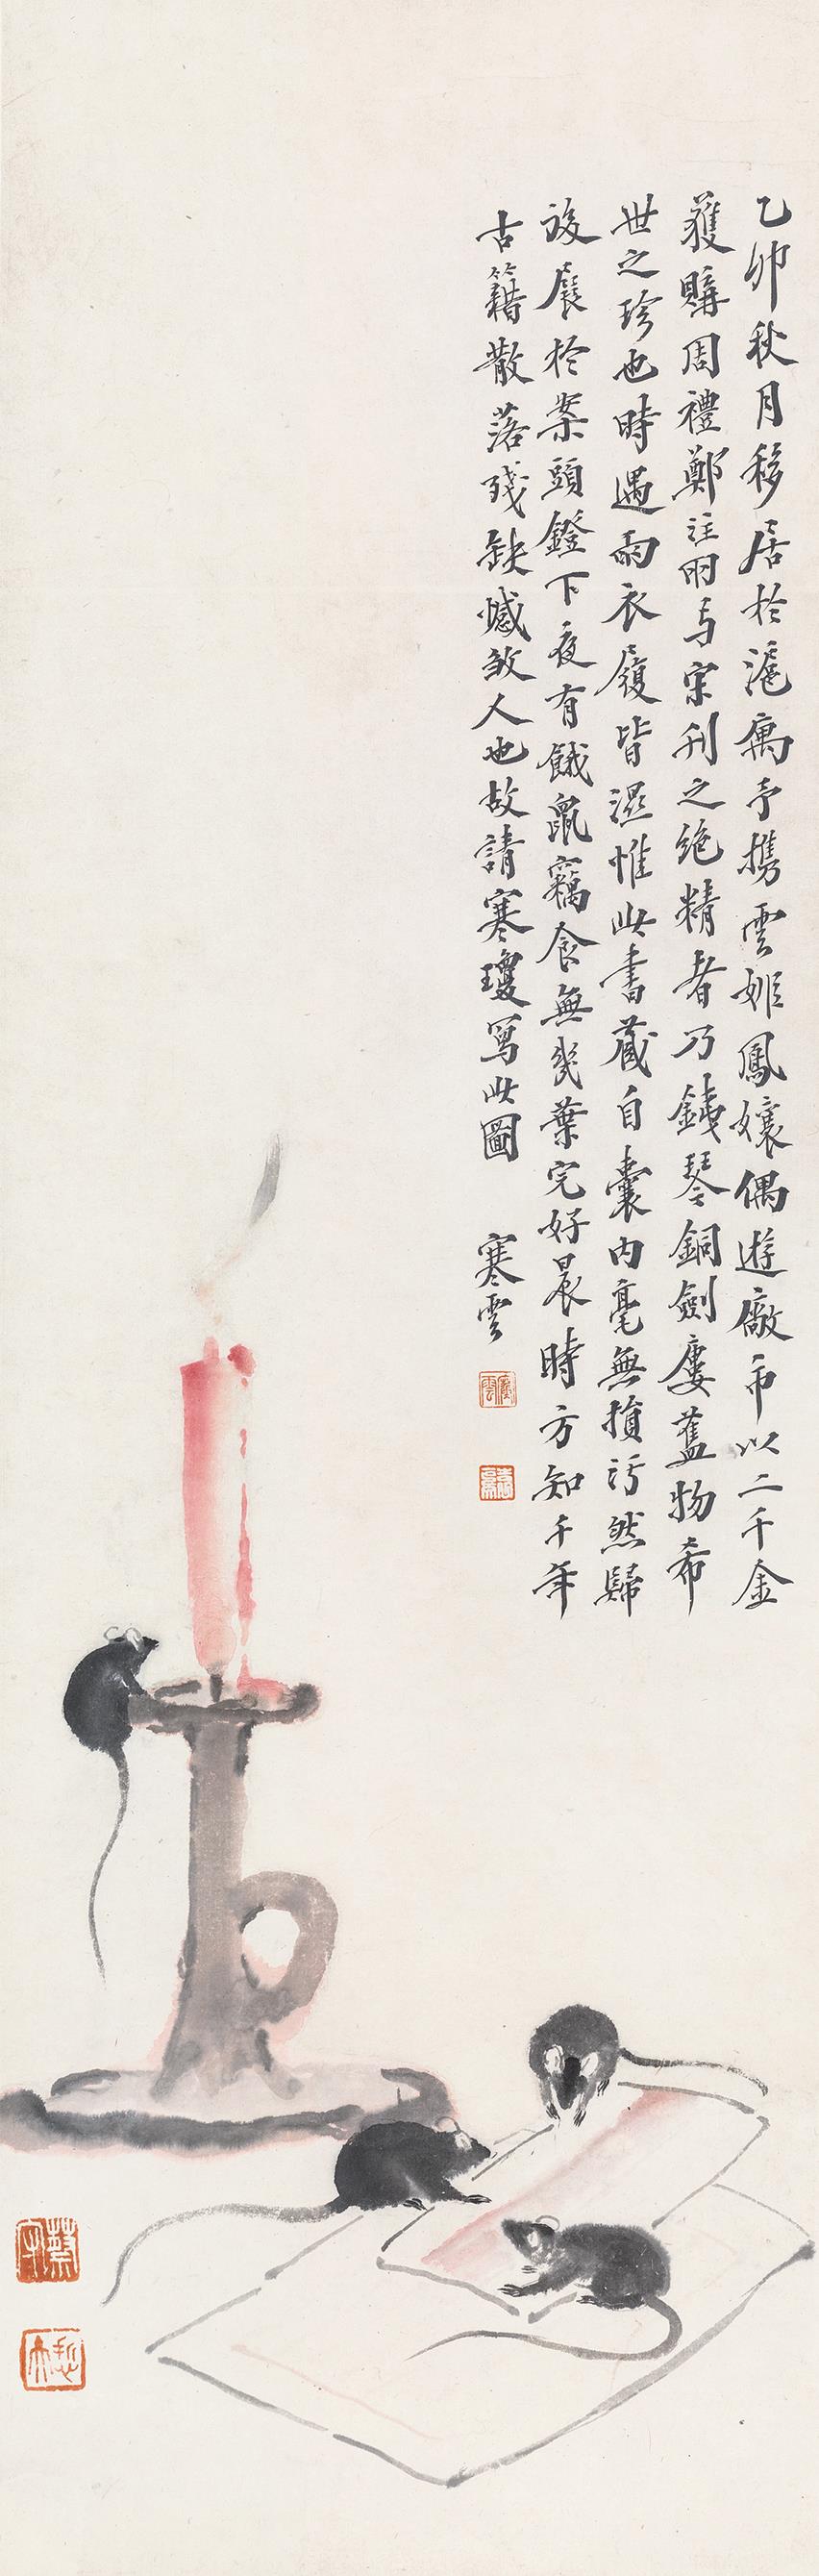 乙卯秋月移居於滬寓予攜雲姬鳳孃偶遊廠市以二千金
獲購周禮鄭註明与宋刊之绝精者乃鐵琴銅劍廔舊物希
世之珍也時遇雨衣履皆濕惟此書藏自囊内毫無損污然歸
後展於案頭鐙下夜有餓鼠竊食無幾葉完好晨時方知千年
古籍散落殘缺憾煞人也故請寒瓊寫此圖
寒雲